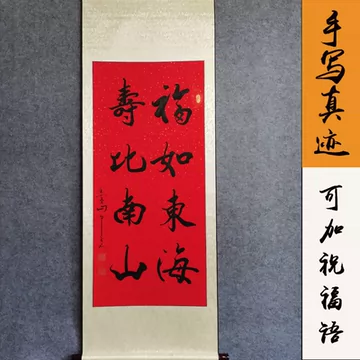 福如東海
壽比南山
手写真迹
可加祝福语